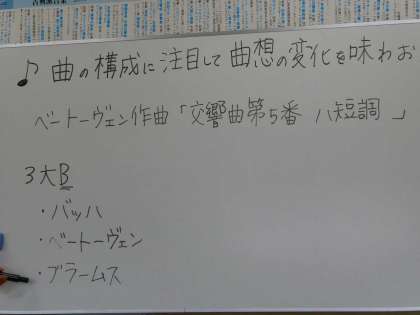 ♪ 曲の構成に注目して曲想の変化を味わお
ベートーヴェン作曲「交響曲第5番 ハ短調 」
3大B
・バッハ
・ベートーヴェン
・ブラームス